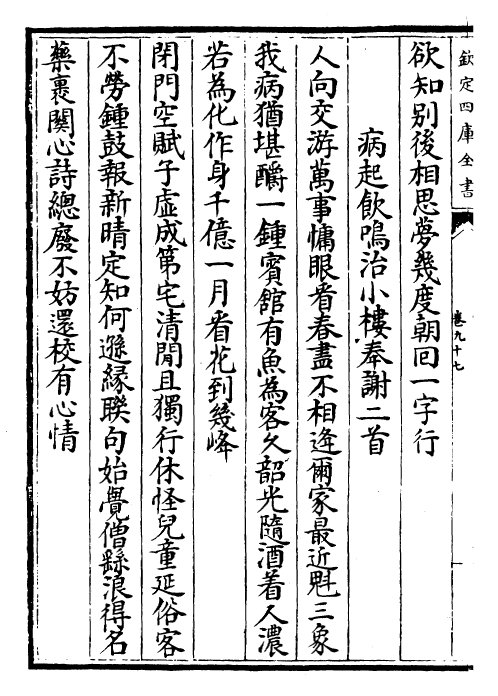 欽定四庫全書
卷九十七
欲知别後相思夢幾度朝回一字行
病起飲嗚治小樓奉謝二首
人向交游萬事慵眼看春盡不相逢爾家最近魁三象
我病猶堪釂一鍾賓舘有魚為客久韶光隨酒着人濃
若為化作身千億一月看花到幾峰
閉門空賦子虚成第宅清閒且獨行休怪兒童延俗客
不勞鍾鼓報新晴定知何遜緣聯句始覺僧繇浪得名
藥裹關心詩總廢不妨還校有心情